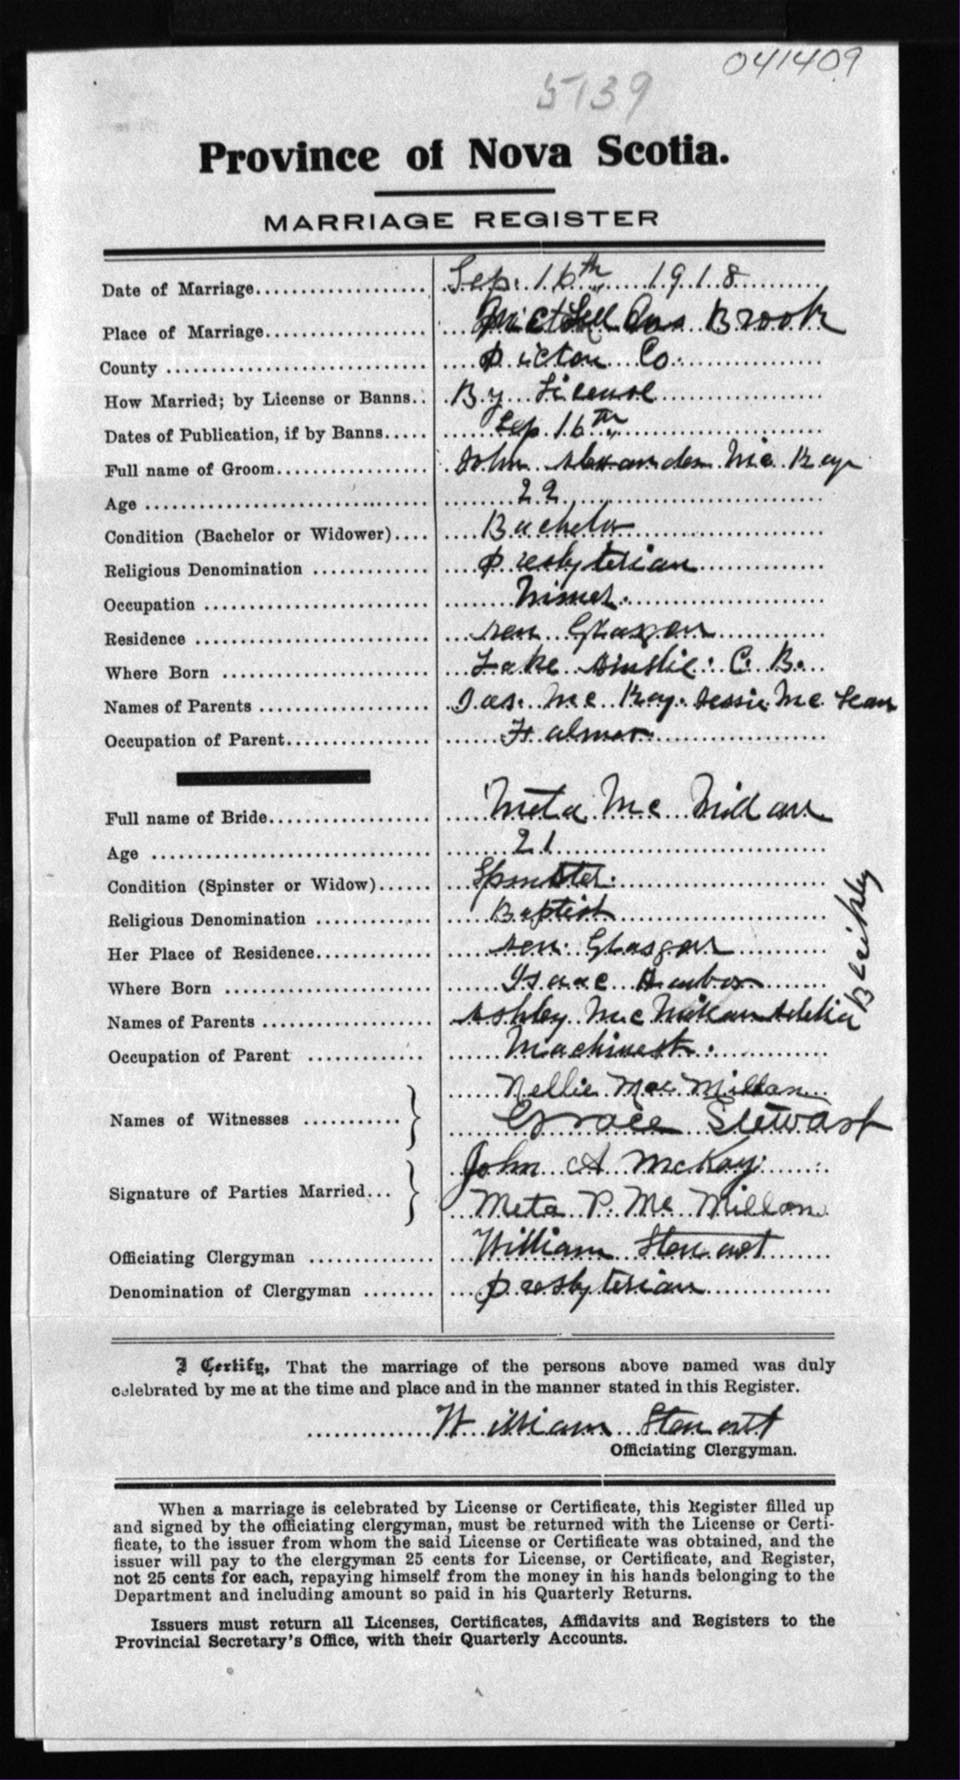 041409
5139
Province of Nova Scotia.
MARRIAGE REGISTER
Date of Marriage.................... Sep. 16th 1918
Place of Marriage.................. Brook
County ............................. Pictou Co.
How Married; by License or Banns.. By License
Dates of Publication, if by Banns..... Sep. 16th
Full name of Groom.................. John Alexander Mc Kay
Age ................................ 22
Condition (Bachelor or Widower).... Bachelor
Religious Denomination ............. Presbyterian
Occupation ......................... Miner.
Residence .......................... New Glasgow
Where Born ........................ Lake Ainslie. C. B.
Names of Parents ................... Jas. Mc Kay. Jessie Mc Lean
Occupation of Parent................
Full name of Bride.................. Meta Mc Millan
Age ................................ 21
Condition (Spinster or Widow)...... Spinster.
Religious Denomination ............. Baptist
Her Place of Residence............. New Glasgow
Where Born ........................ Isaac Harbor
Names of Parents ................... Ashley Mc Millan
Occupation of Parent ............. Machinest.
Names of Witnesses ........... } Nellie Mac Millan
Grace Stewart
Signature of Parties Married... } John A McKay
Meta P. Mc Millan
Officiating Clergyman .............. William Stewart
Denomination of Clergyman ........ Presbyterian
I Certify, That the marriage of the persons above named was duly
celebrated by me at the time and place and in the manner stated in this Register.
William Stewart
Officiating Clergyman.
When a marriage is celebrated by License or Certificate, this Register filled up
and signed by the officiating clergyman, must be returned with the License or Certi-
ficate, to the issuer from whom the said License or Certificate was obtained, and the
issuer will pay to the clergyman 25 cents for License, or Certificate, and Register,
not 25 cents for each, repaying himself from the money in his hands belonging to the
Department and including amount so paid in his Quarterly Returns.
Issuers must return all Licenses, Certificates, Affidavits and Registers to the
Provincial Secretary's Office, with their Quarterly Accounts.